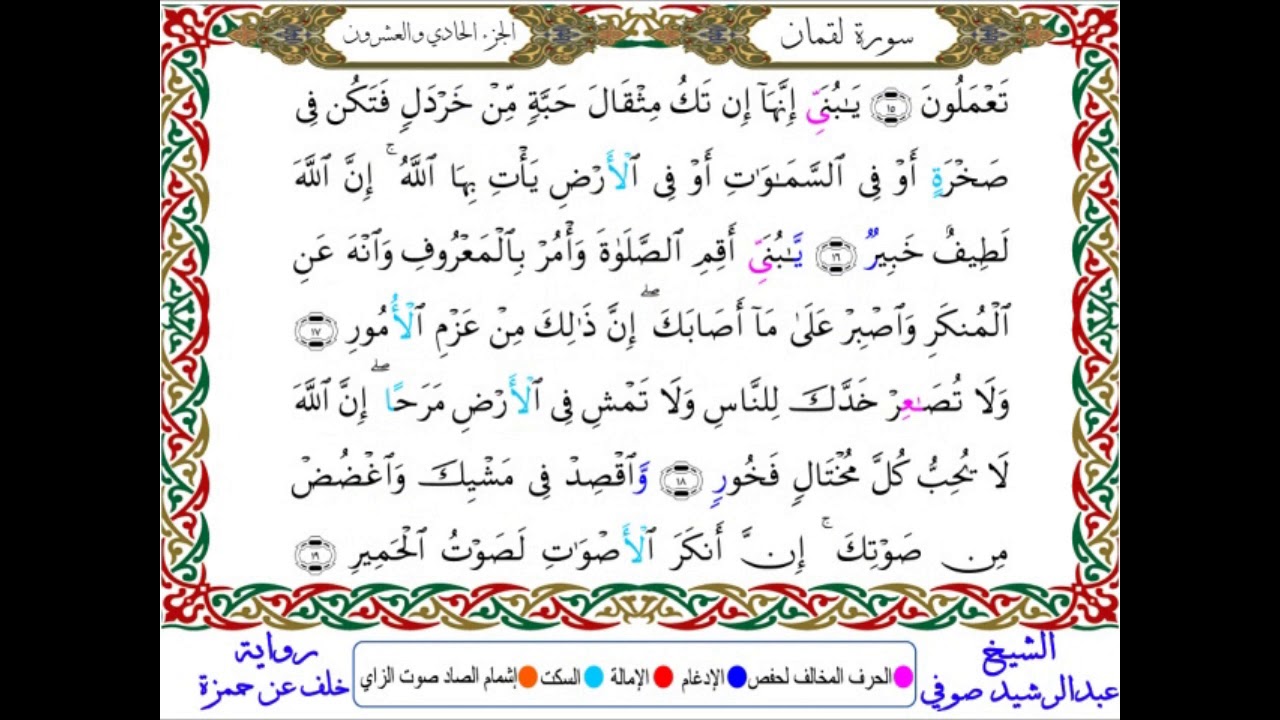 سورة لقمان
الجزء الحادي والعشرون
تَعْمَلُونَ ١٥ يَـٰبُنَيِّ إِنَّهَآ إِن تَكُ مِثْقَالَ حَبَّةٍ مِّنْ خَرْدَلٍ فَتَكُن فِى
صَخْرَةٍ أَوْ فِى ٱلسَّمَـٰوَٰتِ أَوْ فِى ٱلْأَرْضِ يَأْتِ بِهَا ٱللَّهُ ۚ إِنَّ ٱللَّهَ
لَطِيفٌ خَبِيرٌ ١٦ يَّـٰبُنَيِّ أَقِمِ ٱلصَّلَوٰةَ وَأْمُرْ بِٱلْمَعْرُوفِ وَٱنْهَ عَنِ
ٱلْمُنكَرِ وَٱصْبِرْ عَلَىٰ مَآ أَصَابَكَ ۖ إِنَّ ذَٰلِكَ مِنْ عَزْمِ ٱلْأُمُورِ ١٧
وَلَا تُصَـٰعِرْ خَدَّكَ لِلنَّاسِ وَلَا تَمْشِ فِى ٱلْأَرْضِ مَرَحًا ۖ إِنَّ ٱللَّهَ
لَا يُحِبُّ كُلَّ مُخْتَالٍ فَخُورٍ ١٨ وَّٱقْصِدْ فِى مَشْيِكَ وَٱغْضُضْ
مِن صَوْتِكَ ۚ إِنَّ أَنكَرَ ٱلْأَصْوَٰتِ لَصَوْتُ ٱلْحَمِيرِ ١٩
الشيخ
عبدالرشيد صوفي
الحرف المخالف لحفص الإدغام الإمالة السكت إشمام الصاد صوت الزاي
رواية
خلف عن حمزة